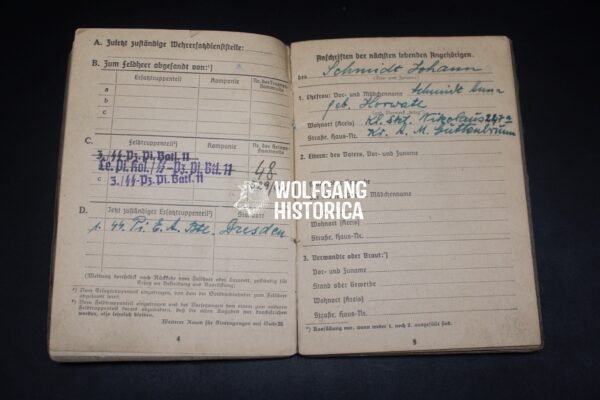 A. Zuletzt zuständige Wehrersatzdienststelle:
B. Zum Feldheer abgesandt von:¹)
Ersatztruppenteil
Kompanie
Nr. der Truppen-Stammrolle
a
b
c
C.
Feldtruppenteil²)
Kompanie
Nr. der Kriegs-
3./SS-Pz. Pi. Batl. 11
Le. Pi. Kol./SS-Pz. Pi. Btl. 11
c 3./SS-Pz. Pi. Batl. 11
48
D.
Jetzt zuständiger Ersatztruppenteil³)
Standort
SS. Pi. E. A. Btl. Dresden
(Meldung dortselbst nach Rückkehr vom Feldheer oder Lazarett, zuständig für Ersatz an Bekleidung und Ausrüstung)
¹) Vom Ersatztruppenteil einzutragen, von dem der Soldbuchinhaber zum Feldheer abgesandt wird.
²) Vom Feldtruppenteil einzutragen und bei Versetzungen von einem zum anderen Feldtruppenteil derart abzuändern, daß die alten Angaben nur durchstrichen werden, also leserlich bleiben.
Weiterer Raum für Eintragungen auf Seite
4
Anschriften der nächsten lebenden Angehörigen.
des Schmidt Johann
(Vor- und Zuname)
1. Ehefrau: Vor- und Mädchenname Schmidt
geb. Horvath
Wohnort (Kreis) Kl. Skt. Nikolaus 247a
Straße, Haus-Nr. Kr. A. M. Guttenbrunn
2. Eltern: des Vaters, Vor- und Zuname
Mädchenname
Wohnort (Kreis)
Straße, Haus-Nr.
3. Verwandte oder Braut:*)
Vor- und Zuname
Stand oder Gewerbe
Wohnort (Kreis)
Straße, Haus-Nr.
*) Ausfüllung nur, wenn weder 1. noch 2. ausgefüllt sind.
5
WOLFGANG
HISTORICA